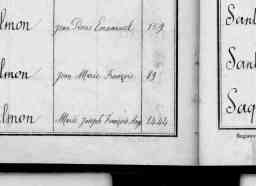 lmon Jean Pierre Emmanuel 159
lmon Jean Marie François 19
lmon Marie Joseph François Aug 1444
Sanl
Sanl
Saq